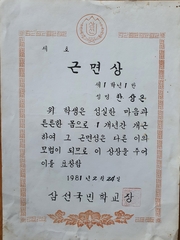 제 호
근면상
제 1 학년 1 반
성명 한상은
위 학생은 성실한 마음과
튼튼한 몸으로 1 개년간 개근
하여 그 근면성은 다른 이의
모범이 되므로 이 상장을 주어
이를 표창함
1981 년 2 월 24 일
삼선국민학교장